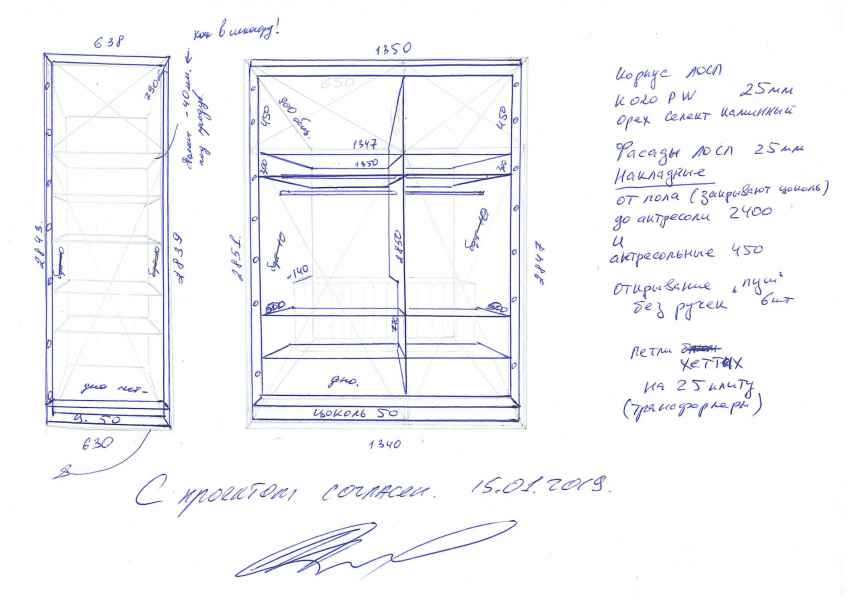 638
как в шкафу!
-40 мм.
под трубу
290
2843.
2839
дно нет-
ц. 50
630
1350
650
450
800
450
1347
1350
300
2851.
2850
2847
-140
600
600
770
дно.
цоколь 50
1340
Корпус ЛДСП
K020 PW 25мм
орех Селект каминный
Фасады ЛДСП 25мм
Накладные
от пола (закрывают цоколь)
до антресоли 2400
и
антресольные 450
открывание "пуш"
без ручек 6шт
петли
ХЕТТИХ
на 25 плиту
(трансформеры)
С проектом согласен. 15.01.2019.